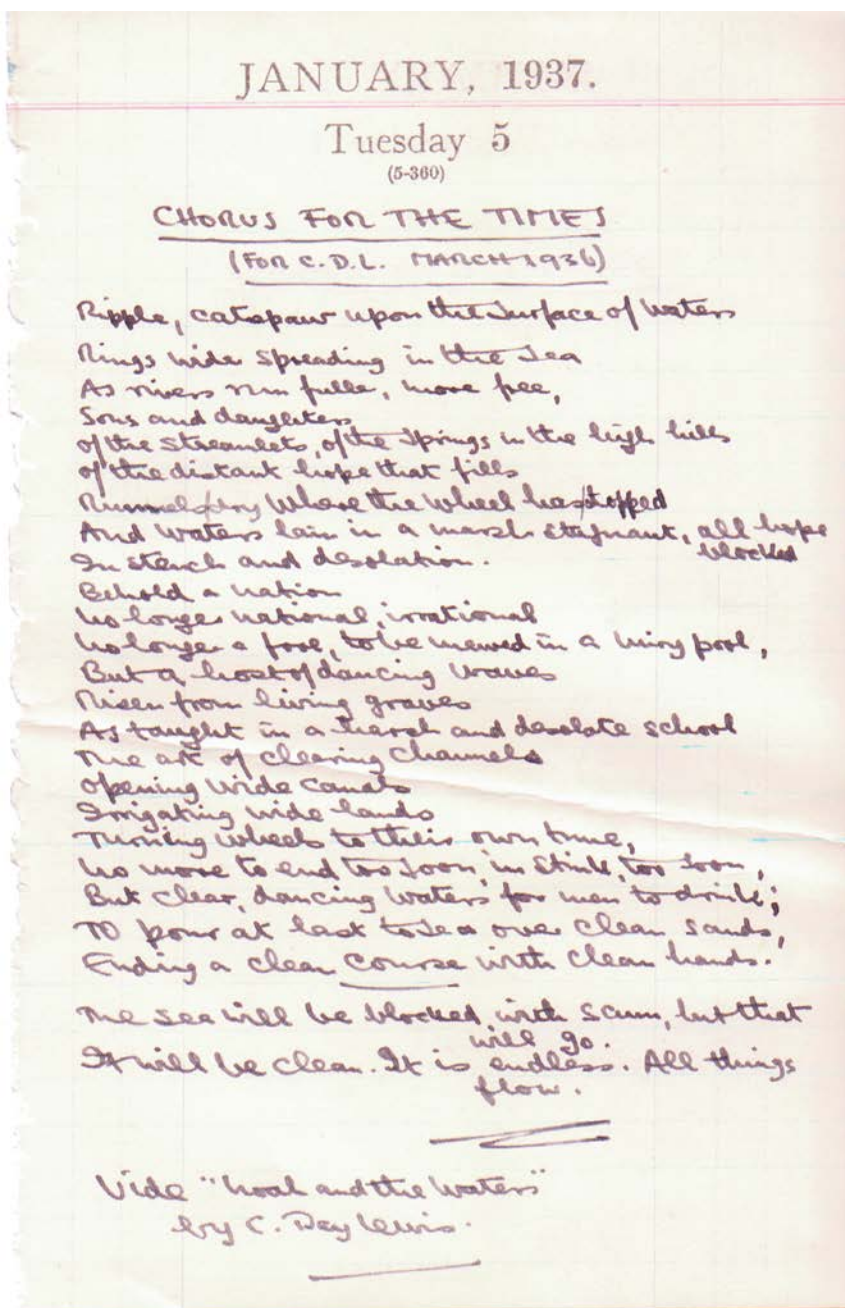 JANUARY, 1937.
Tuesday 5
(5-360)
CHORUS FOR THE TIMES
(FOR C.D.L. MARCH 1936)
Ripple, catspaw upon the surface of waters
Rings wide spreading in the sea
As rivers run fulle, more free,
Sons and daughters
of the streamlets, of the springs in the high hills
of the distant hope that fills
Runnels dry where the wheel has stopped
And waters lain in a marsh stagnant, all hope
blocked
In stench and desolation.
Behold a nation
No longer national, irrational
No longer a fool, to be mewed in a miry pool,
But a host of dancing waves
Risen from living graves
As taught in a harsh and desolate school
The art of clearing channels
Opening wide canals
Irrigating wide lands
Turning wheels to their own tune,
No more to end too soon, in stink, too soon,
But clear, dancing waters for men to drink;
To pour at last to sea over clean sands,
Ending a clean course with clean hands.
The sea will be blocked with scum, but that
will go.
It will be clean. It is endless. All things
flow.
Vide "Noah and the Waters"
by C. Day Lewis.